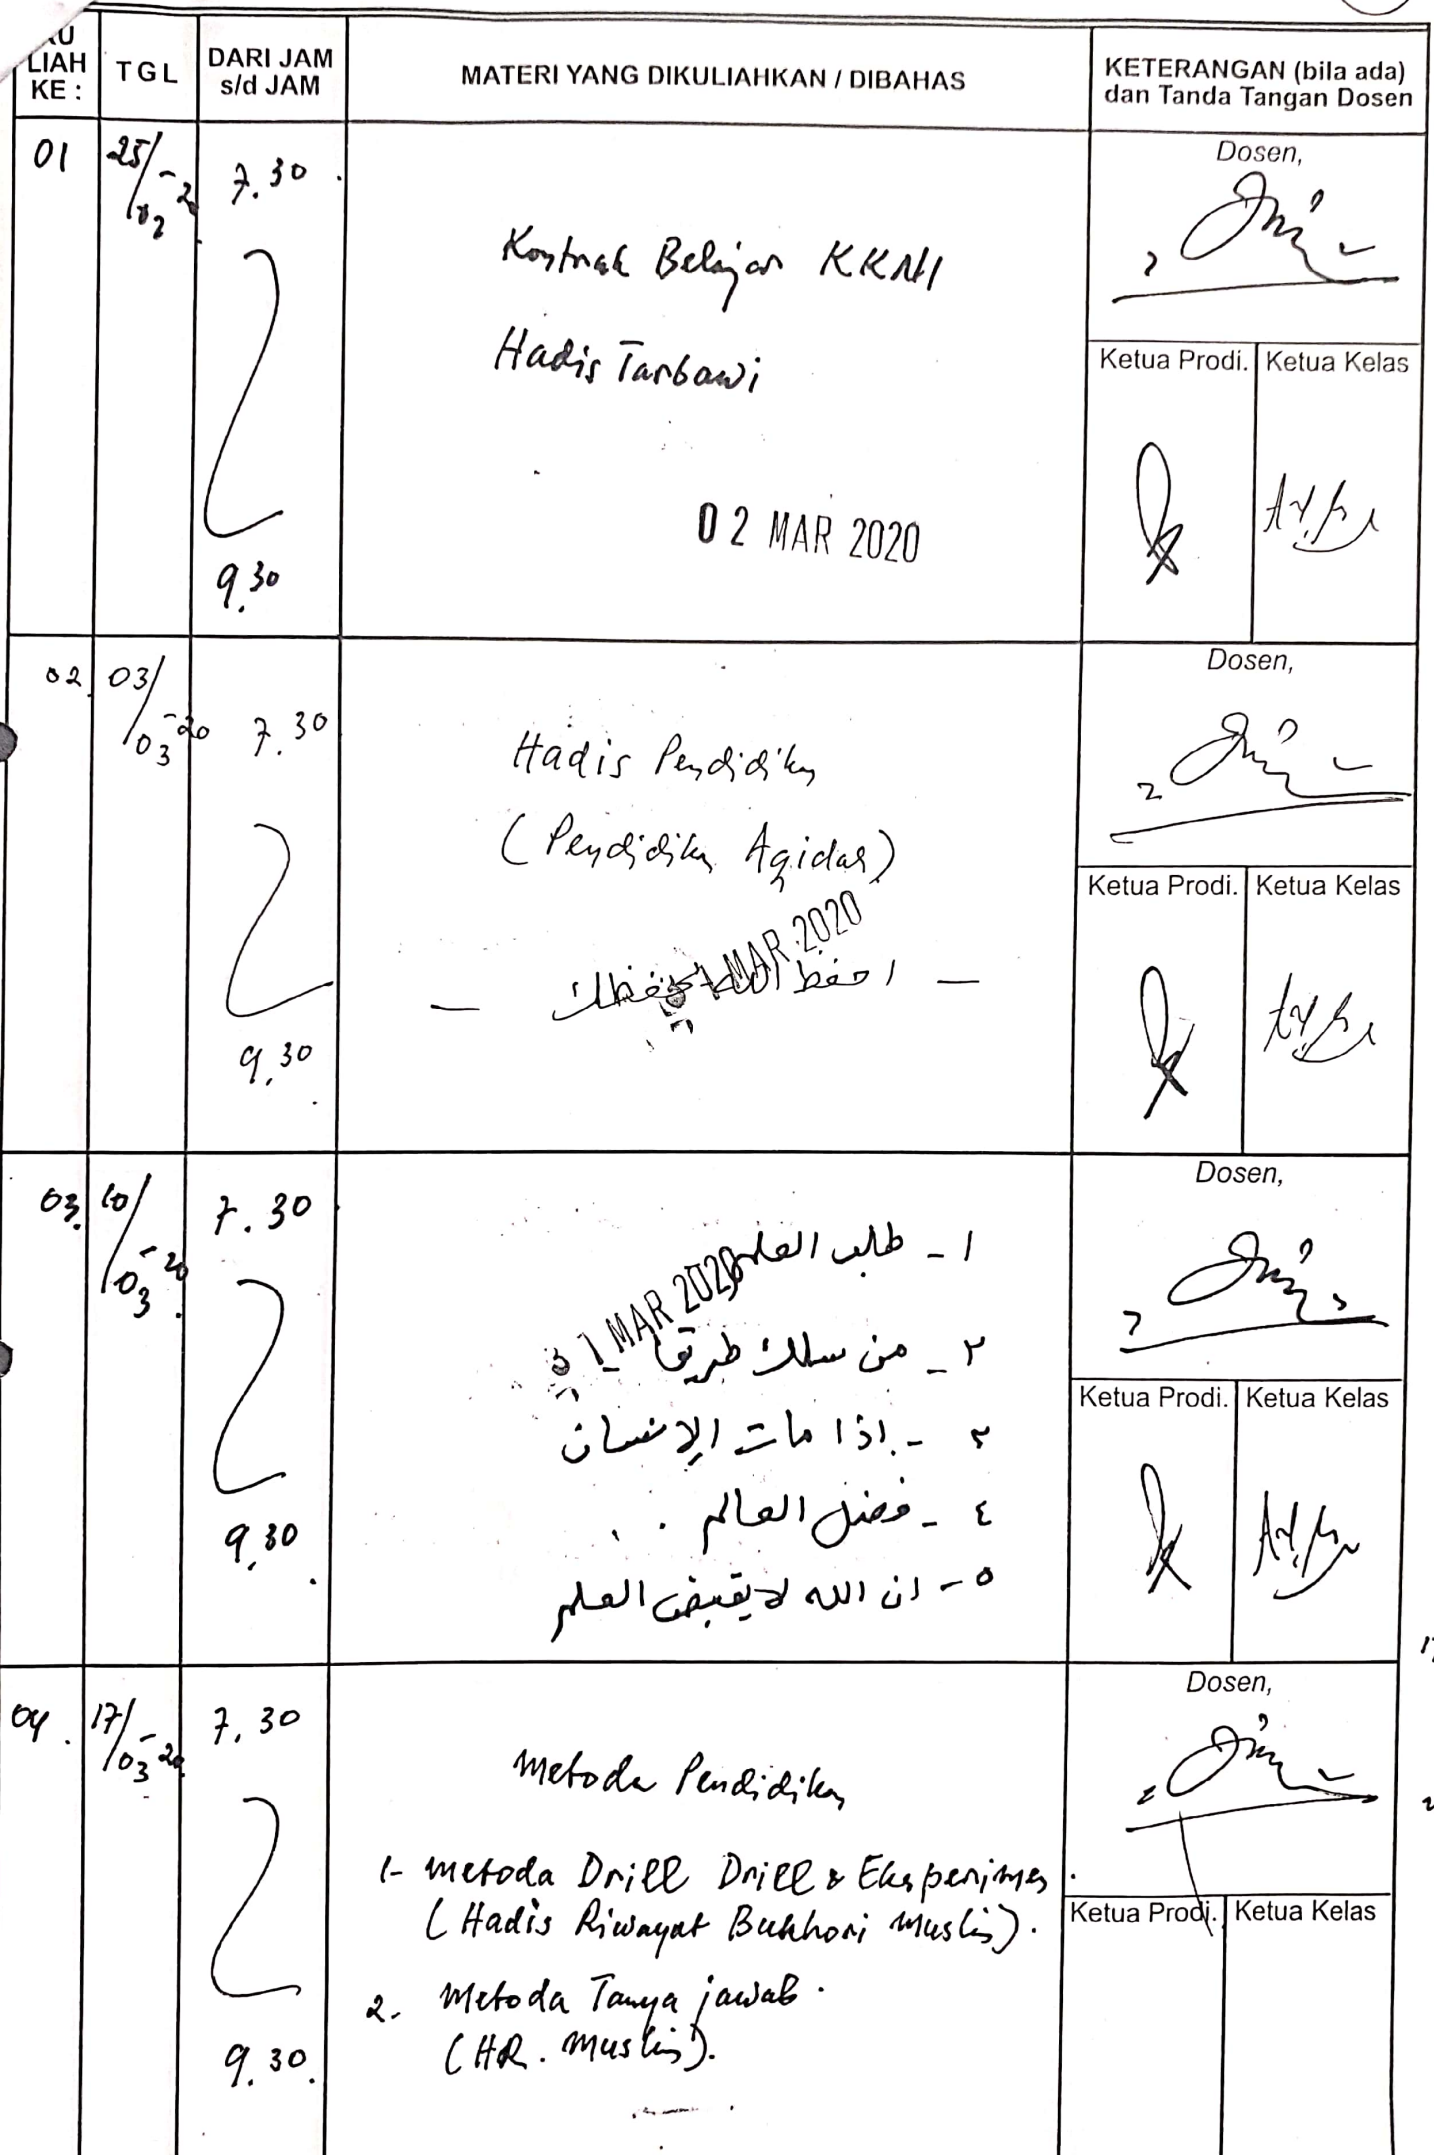 KU
LIAH
KE :
TGL
DARI JAM
s/d JAM
MATERI YANG DIKULIAHKAN / DIBAHAS
KETERANGAN (bila ada)
dan Tanda Tangan Dosen
01
25/02-20
7.30
9.30
Kontrak Belajar KKNI
Hadis Tarbawi
02 MAR 2020
Dosen,
Ketua Prodi.
Ketua Kelas
02
03/03-20
7.30
9.30
Hadis Pendidikan
(Pendidikan Aqidah)
MAR 2020
— احفظ الله يحفظك —
Dosen,
Ketua Prodi.
Ketua Kelas
03.
10/03-20
7.30
9.30
١ - طلب العلم
MAR 2020
٢ - من سلك طريقا
٣ - اذا مات الإنسان
٤ - فضل العالم
٥ - ان الله لا يقبض العلم
Dosen,
Ketua Prodi.
Ketua Kelas
04.
17/03-20
7.30
9.30.
Metoda Pendidikan
1- Metoda Drill Drill & Eksperimen.
(Hadis Riwayat Bukhori Muslim).
2- Metoda Tanya jawab.
(HR. Muslim).
Dosen,
Ketua Prodi.
Ketua Kelas